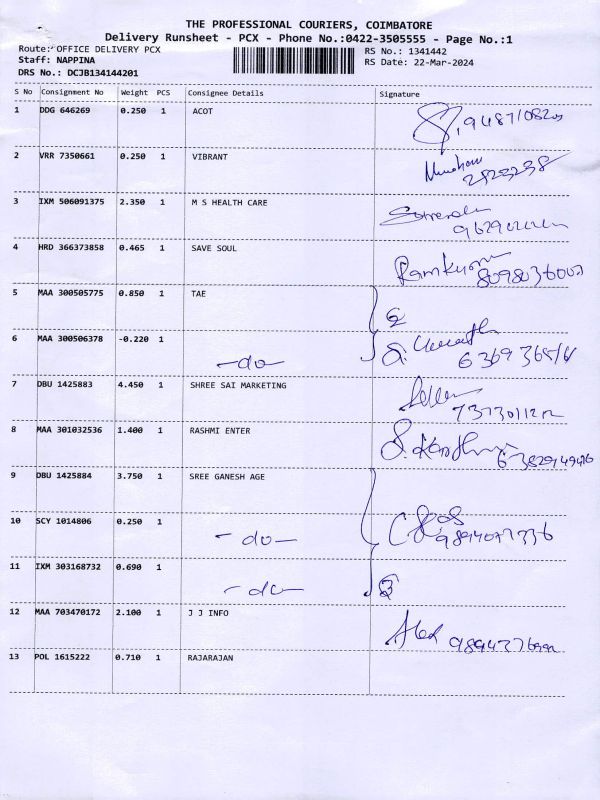 THE PROFESSIONAL COURIERS, COIMBATORE
Delivery Runsheet - PCX - Phone No.:0422-3505555 - Page No.:1
Route: OFFICE DELIVERY PCX RS No.: 1341442
Staff: NAPPINA RS Date: 22-Mar-2024
DRS No.: DCJB134144201
S No Consignment No Weight PCS Consignee Details Signature
1 DDG 646269 0.250 1 ACOT
2 VRR 7350661 0.250 1 VIBRANT
3 IXM 506091375 2.350 1 M S HEALTH CARE
4 HRD 366373858 0.465 1 SAVE SOUL Ramkumar
5 MAA 300505775 0.850 1 TAE
6 MAA 300506378 -0.220 1 -do-
7 DBU 1425883 4.450 1 SHREE SAI MARKETING
8 MAA 301032536 1.400 1 RASHMI ENTER
9 DBU 1425884 3.750 1 SREE GANESH AGE
10 SCY 1014806 0.250 1 -do-
11 IXM 303168732 0.690 1 -do-
12 MAA 703470172 2.100 1 J J INFO Alex
13 POL 1615222 0.710 1 RAJARAJAN